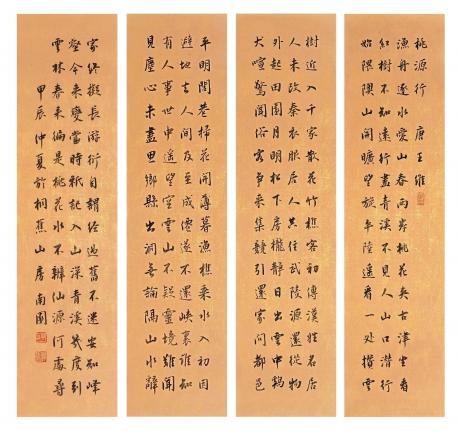 桃源行 唐王維
漁舟逐水愛山春兩岸桃花夾古津坐看
紅樹不知遠行盡青溪不見人山口潛行
始隈隩山開曠望旋平陸遙看一處攢雲
樹近入千家散花竹樵客初傳漢姓名居
人未改秦衣服居人共住武陵源還從物
外起田園月明松下房櫳靜日出雲中鷄
犬喧驚聞俗客爭來集競引還家問都邑
平明閭巷掃花開薄暮漁樵乘水入初因
避地去人間及至成僊遂不還峽裏誰知
有人事世中遙望空雲山不疑靈境難聞
見塵心未盡思鄉縣出洞無論隔山水辭
家終擬長游衍自謂經過舊不迷安知峰
壑今來變當時秖記入山深青溪幾度到
雲林春來徧是桃花水不辨仙源何處尋
甲辰仲夏於桐蕉山房南園